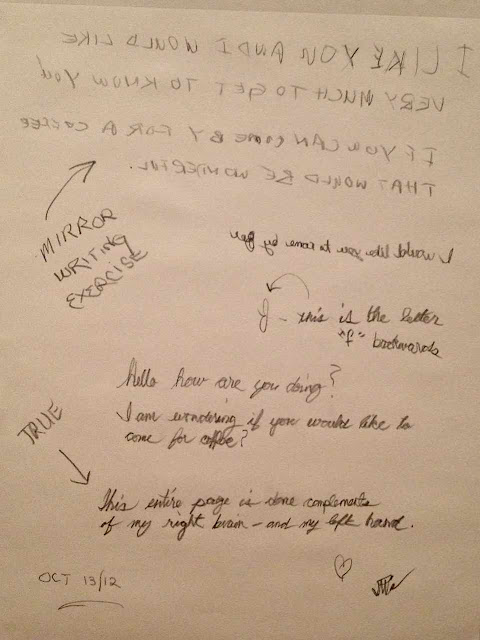 I LIKE YOU AND I WOULD LIKE
VERY MUCH TO GET TO KNOW YOU
IF YOU CAN COME BY FOR A COFFEE
THAT WOULD BE WONDERFUL.
MIRROR
WRITING
EXERCISE
I would like you to come by for
J - this is the letter
"J" backwards
Hello how are you doing?
I am wondering if you would like to
come for coffee?
TRUE
This entire page is done complements
of my right brain - and my left hand.
OCT 13/12